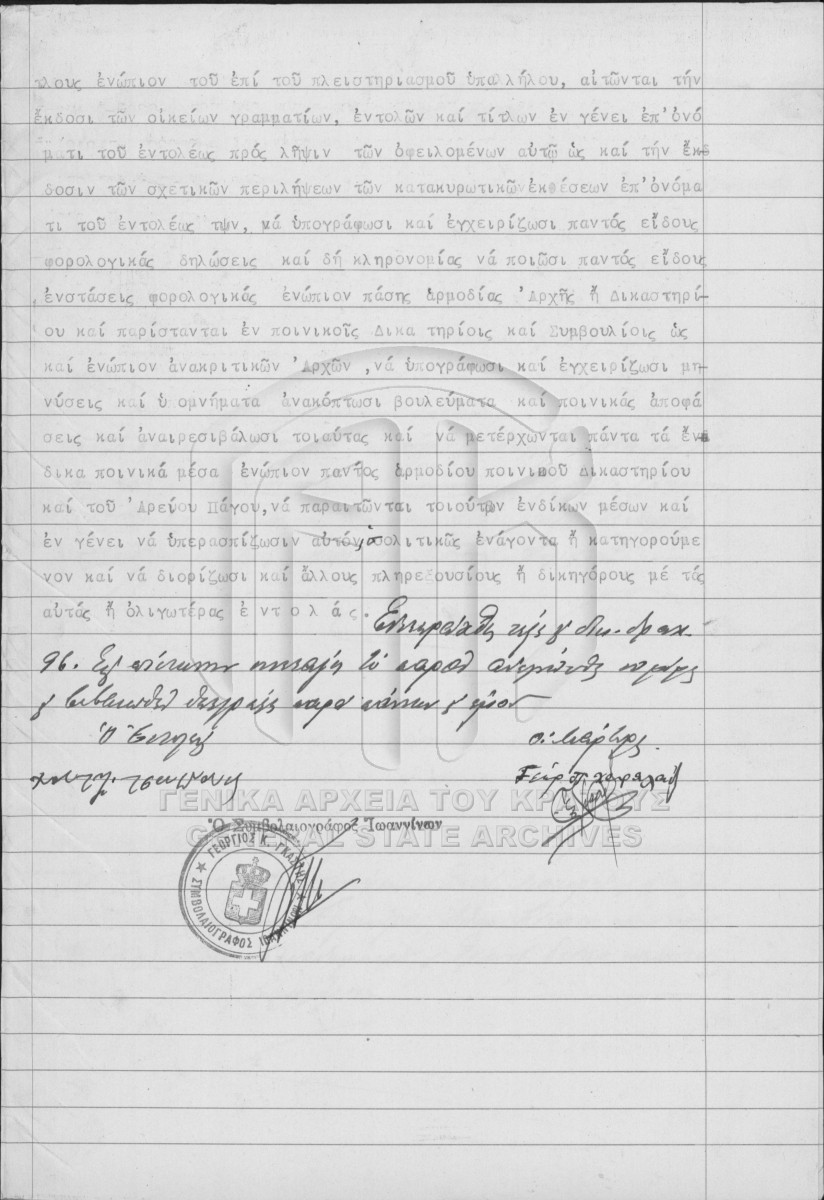 τλους ἐνώπιον τοῦ ἐπί τοῦ πλειστηριασμοῦ ὑπαλλήλου, αἰτῶνται τήν
ἔκδοσι τῶν οἰκείων γραμματίων, ἐντολῶν καί τίτλων ἐν γένει ἐπ'ὀνό
ματι τοῦ ἐντολέως πρός λῆψιν τῶν ὀφειλομένων αὐτῷ ὡς καί τήν ἔκ
δοσιν τῶν σχετικῶν περιλήψεων τῶν κατακυρωτικῶνἐκθέσεων ἐπ'ὀνόμα
τι τοῦ ἐντολέως των, νά ὑπογράφωσι καί ἐγχειρίζωσι παντός εἴδους
φορολογικάς δηλώσεις καί δή κληρονομίας νά ποιῶσι παντός εἴδους
ἐνστάσεις φορολογικάς ἐνώπιον πάσης ἁρμοδίας 'Αρχῆς ἤ Δικαστηρί-
ου καί παρίστανται ἐν ποινικοῖς Δικα τηρίοις καί Συμβουλίοις ὡς
καί ἐνώπιον ἀνακριτικῶν 'Αρχῶν ,νά ὑπογράφωσι καί ἐγχειρίζωσι μη-
νύσεις καί ὑπομνήματα ἀνακόπτωσι βουλεύματα καί ποινικάς ἀποφά
σεις καί ἀναιρεσιβάλωσι τοιαύτας καί νά μετέρχωνται πάντα τά ἔν
δικα ποινικά μέσα ἐνώπιον παντός ἁρμοδίου ποινικοῦ Δικαστηρίου
καί τοῦ 'Αρείου Πάγου,νά παραιτῶνται τοιούτων ἐνδίκων μέσων καί
ἐν γένει νά ὑπερασπίζωσιν αὐτόν, πολιτικῶς ἐνάγοντα ἤ κατηγορούμε
νον καί νά διορίζωσι καί ἄλλους πληρεξουσίους ἤ δικηγόρους μέ τάς
αὐτάς ἤ ὀλιγωτέρας ἐντολάς.
96.
Ὁ Ἐντολεύς
οἱ Μάρτυρες
ΓΕΝΙΚΑ ΑΡΧΕΙΑ ΤΟΥ ΚΡΑΤΟΥΣ
Ὁ Συμβολαιογράφος Ἰωαννίνων
GENERAL STATE ARCHIVES
ΓΕΩΡΓΙΟΣ Κ. ΓΚΑΣΤΗΣ
ΣΥΜΒΟΛΑΙΟΓΡΑΦΟΣ ΙΩΑΝΝΙΝΩΝ